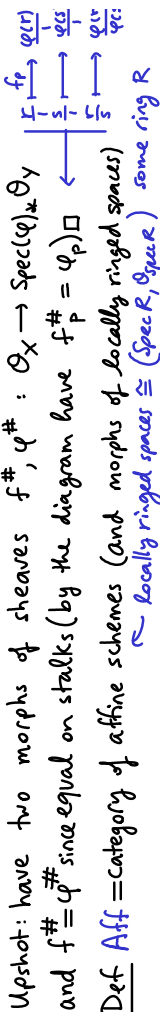 r/1 ↦ᶠᵖ φ(r)/1
s/1 ↦ φ(s)/1
r/s ↦ φ(r)/φ(s)
Upshot: have two morphs of sheaves f^#, φ^# : O_X → Spec(φ)_* O_Y
and f^# = φ^# since equal on stalks (by the diagram have f^#_p = φ_p) □
Def Aff = category of affine schemes (and morphs of locally ringed spaces)
locally ringed spaces ≅ (Spec R, O_Spec R) some ring R